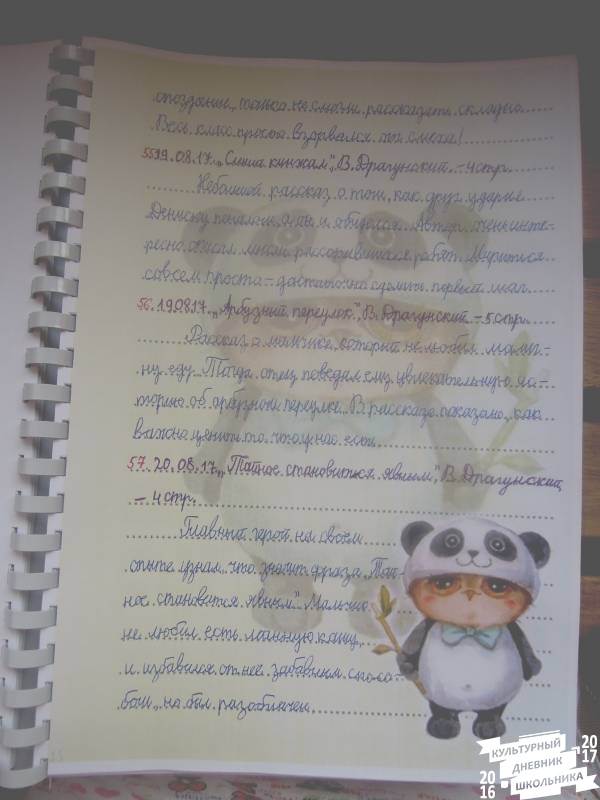 опоздание, только не смогли рассказать складно.
Весь класс просто взорвался от смеха!
55 19.08.17. „Синий кинжал", В. Драгунский. - 4 стр.
Небольшой рассказ о том, как друг ударил
Дениску пеналом и обиделся. Автор очень инте-
ресно описал поссорившихся ребят. Мириться
совсем просто - достаточно сделать первый шаг.
56. 19.08.17. „Арбузный переулок", В. Драгунский - 5 стр.
Рассказ о мальчике, который не любил мами-
ну еду. Тогда отец поведал ему увлекательную ис-
торию об арбузном переулке. В рассказе показано, как
важно ценить то, что у нас есть.
57. 20.08.17. „Тайное становится явным", В. Драгунский
- 4 стр.
Главный герой на своём
опыте узнал, что значит фраза „Тай-
ное становится явным". Мальчик
не любил есть манную кашу
и избавился от нее забавным спосо-
бом, но был разоблачен.
КУЛЬТУРНЫЙ
ДНЕВНИК
ШКОЛЬНИКА
2016
2017